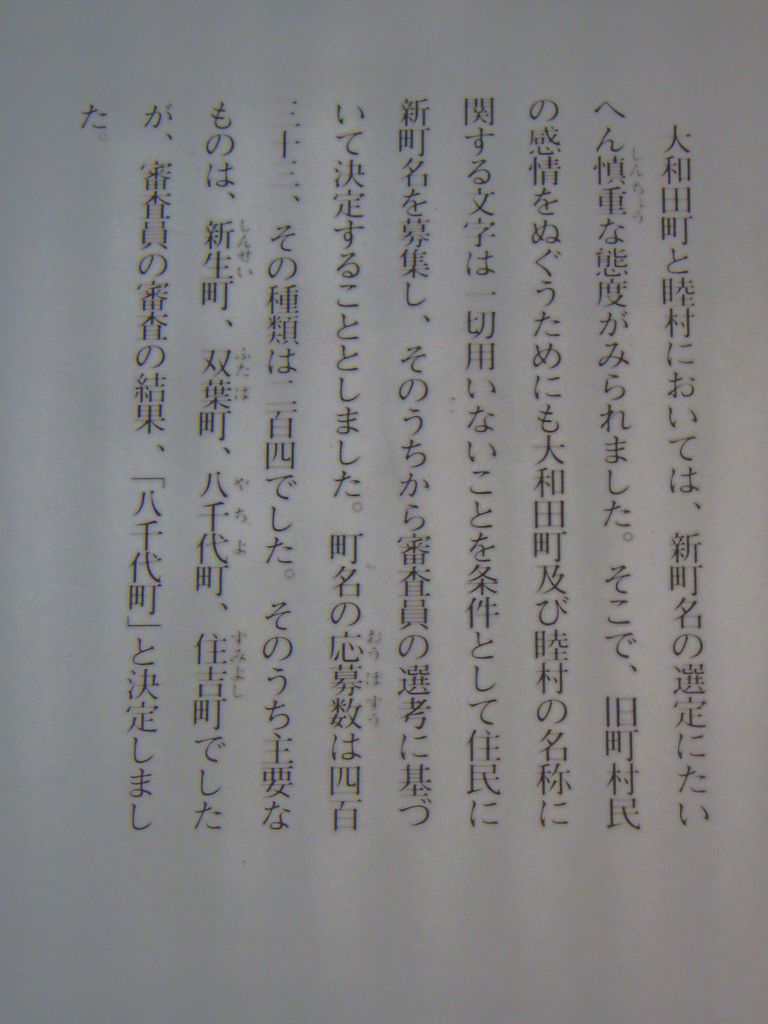 大和田町と睦村においては、新町名の選定にたい
へん慎重な態度がみられました。そこで、旧町村民
の感情をぬぐうためにも大和田町及び睦村の名称に
関する文字は一切用いないことを条件として住民に
新町名を募集し、そのうちから審査員の選考に基づ
いて決定することとしました。町名の応募数は四百
三十三、その種類は二百四でした。そのうち主要な
ものは、新生町、双葉町、八千代町、住吉町でした
が、審査員の審査の結果、「八千代町」と決定しまし
た。